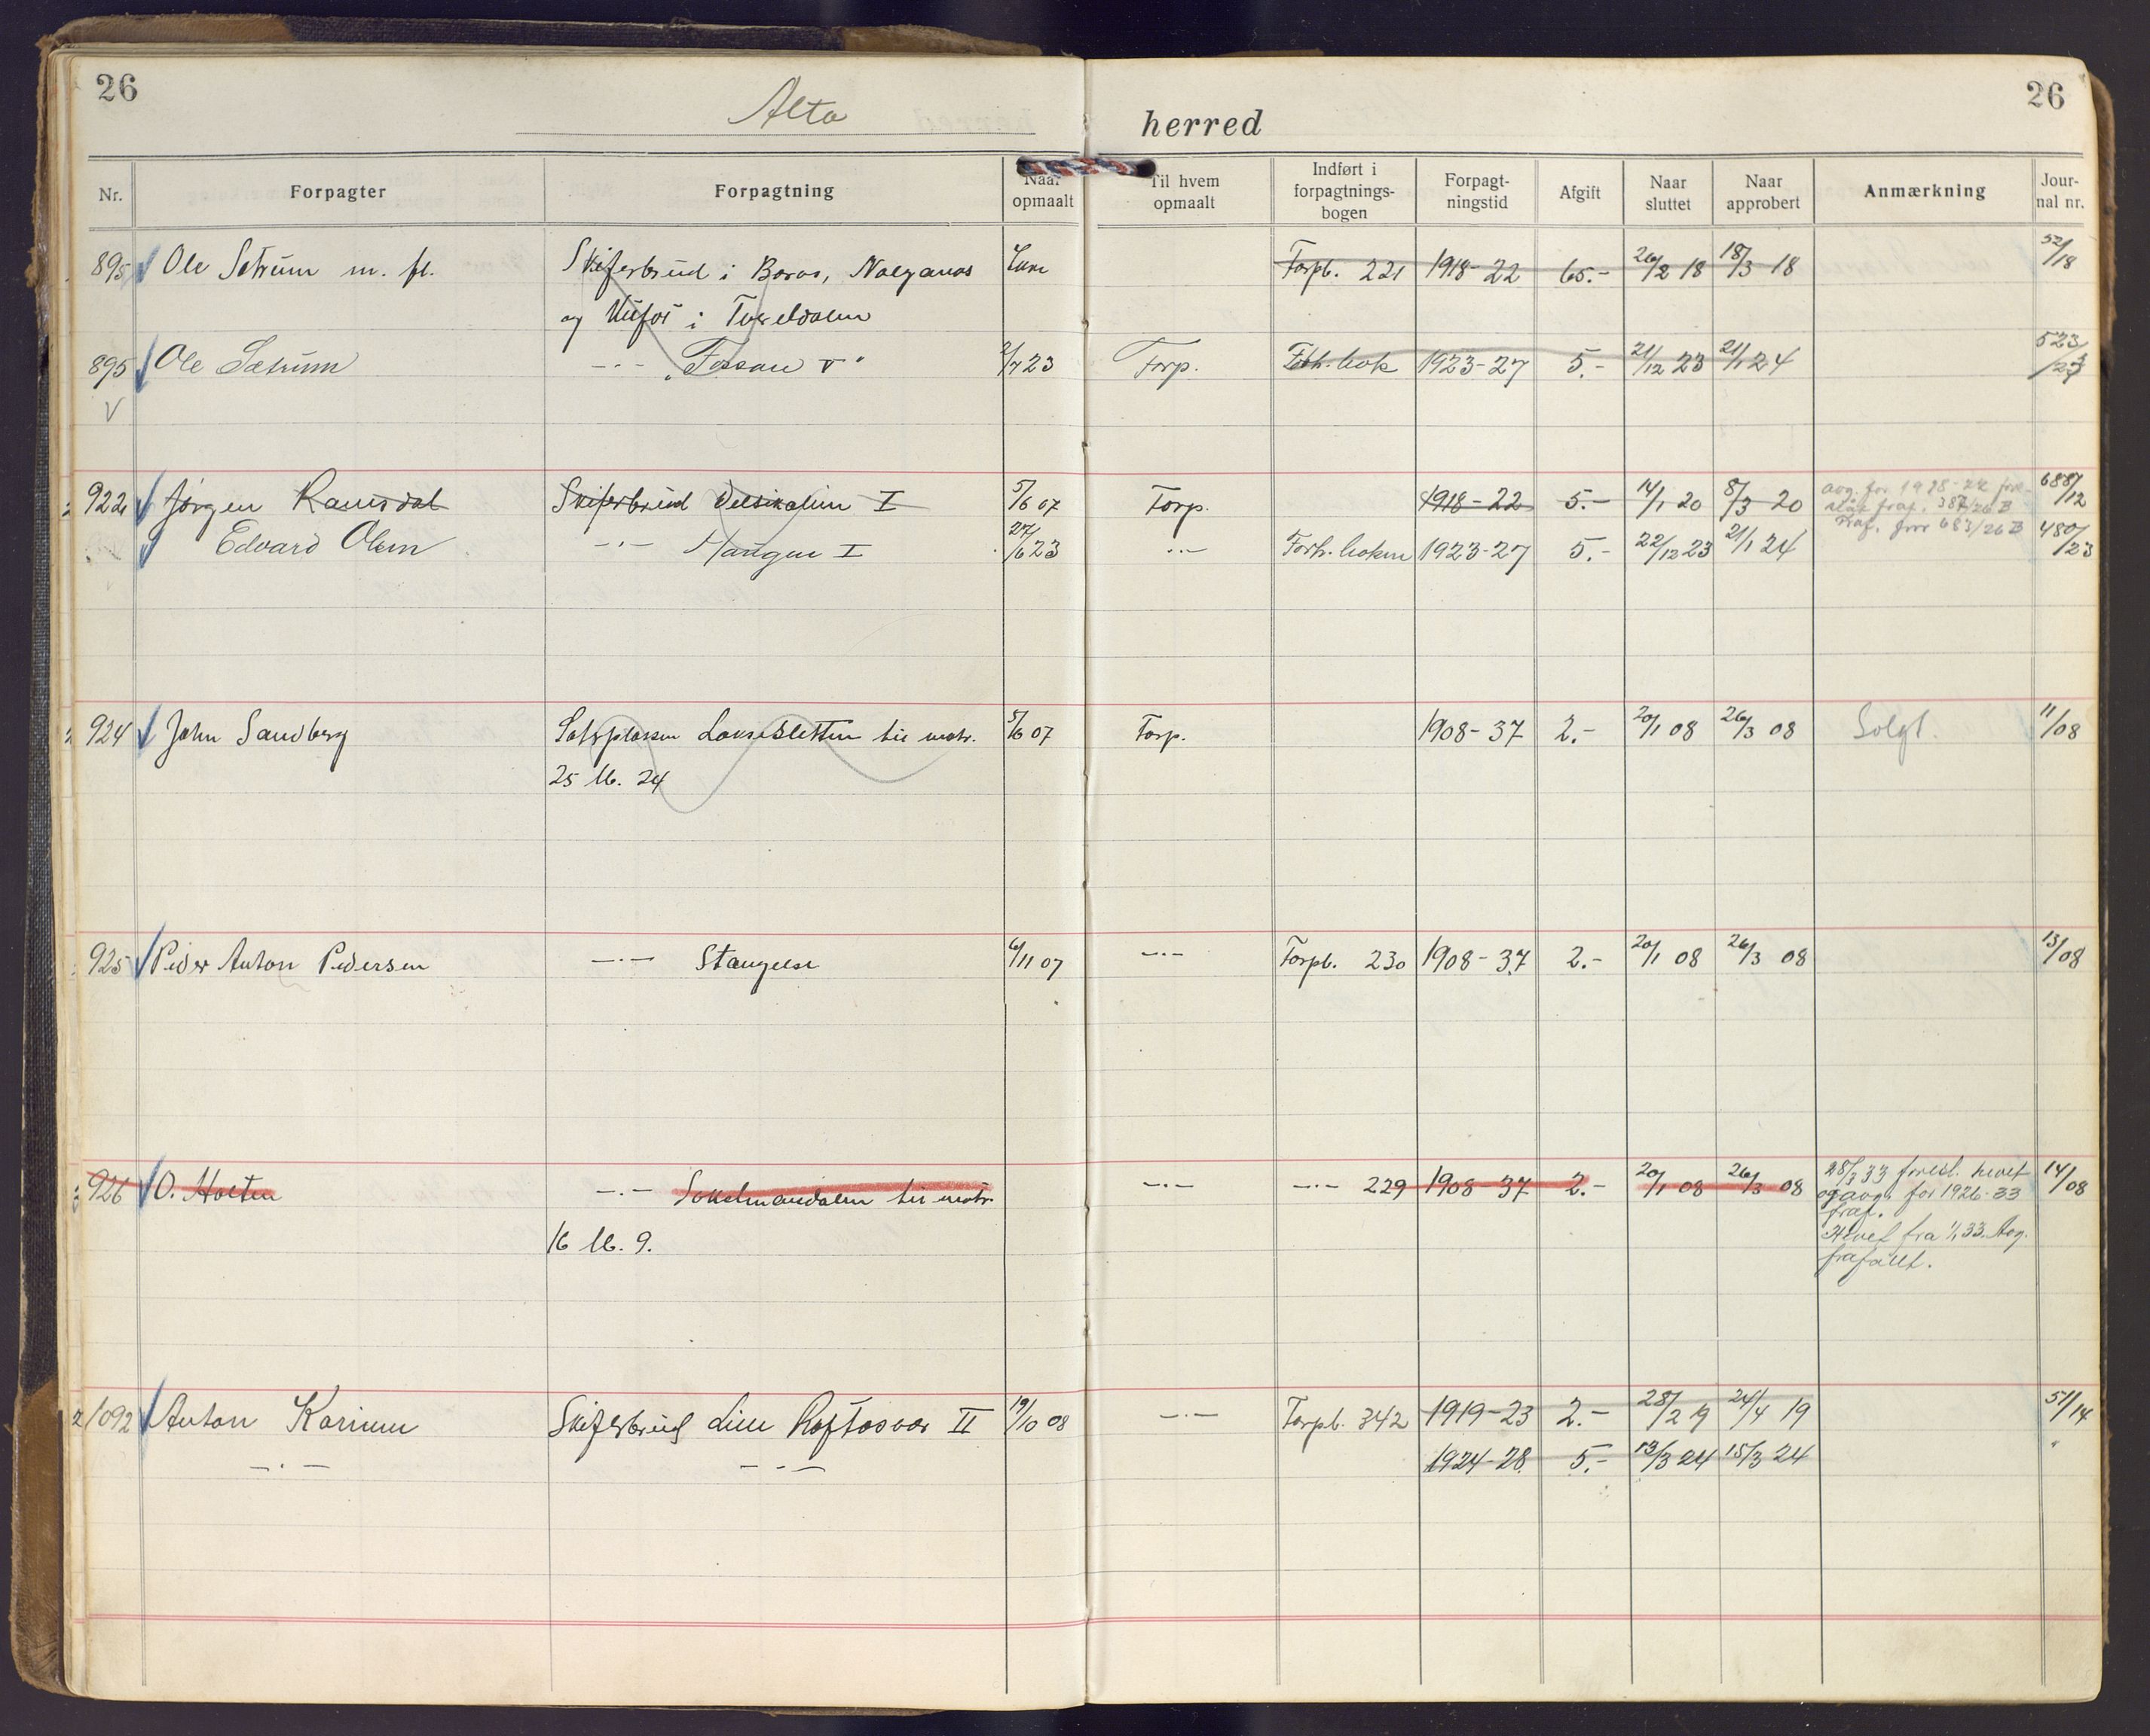 26
26
Alta herred
Nr. Forpagter Forpagtning Naar opmaalt Til hvem opmaalt Indført i forpagtnings-bogen Forpagt-ningstid Afgift Naar sluttet Naar approbert Anmærkning Jour-nal nr.
895 Ole Sætrum m. fl. Skiferbrud i Boras, Nalganas Forpb. 221 1918-22 65.- 26/2 18 18/3 18 52/18
og i Tverelvdalen
895 Ole Sætrum -"- "Fossan V" 2/7 23 Forp. Forh.bok 1923-27 5.- 21/12 23 21/1 24 523/23
V
922 Jørgen Ramsdal Skiferbrud I 5/6 07 Forp. 1918-22 5.- 14/1 20 8/3 20 avg. for 1918-22 688/12
fraf. 387/26 B
Edvard Olsen -"- Haugen I 27/6 23 -"- Forh.boken 1923-27 5.- 22/12 23 21/1 24 683/26 B 480/23
924 John Sandberg Lakseslette til matr. 5/6 07 Forp. 1908-37 2.- 20/1 08 26/3 08 Solgt. 11/08
25 lb. 24
925 Peder Anton Pedersen -"- Stangelse 6/11 07 -"- Forpb. 230 1908-37 2.- 20/1 08 26/3 08 13/08
926 O. Holten -"- Sokelmandalen til matr. -"- -"- 229 1908-37 2.- 20/1 08 26/3 08 28/3 33 foresl. hevet 14/08
og avg. for 1926-33
fraf.
16 lb. 9. Hevet fra 1/1 33. Avg.
frafallt.
1092 Anton Karinen Skiferbrud Lille Raftasvar II 19/10 08 -"- Forpb. 342 1919-23 2.- 28/2 19 24/4 19 51/14
-"- -"- 1924-28 5.- 13/3 24 15/3 24 "